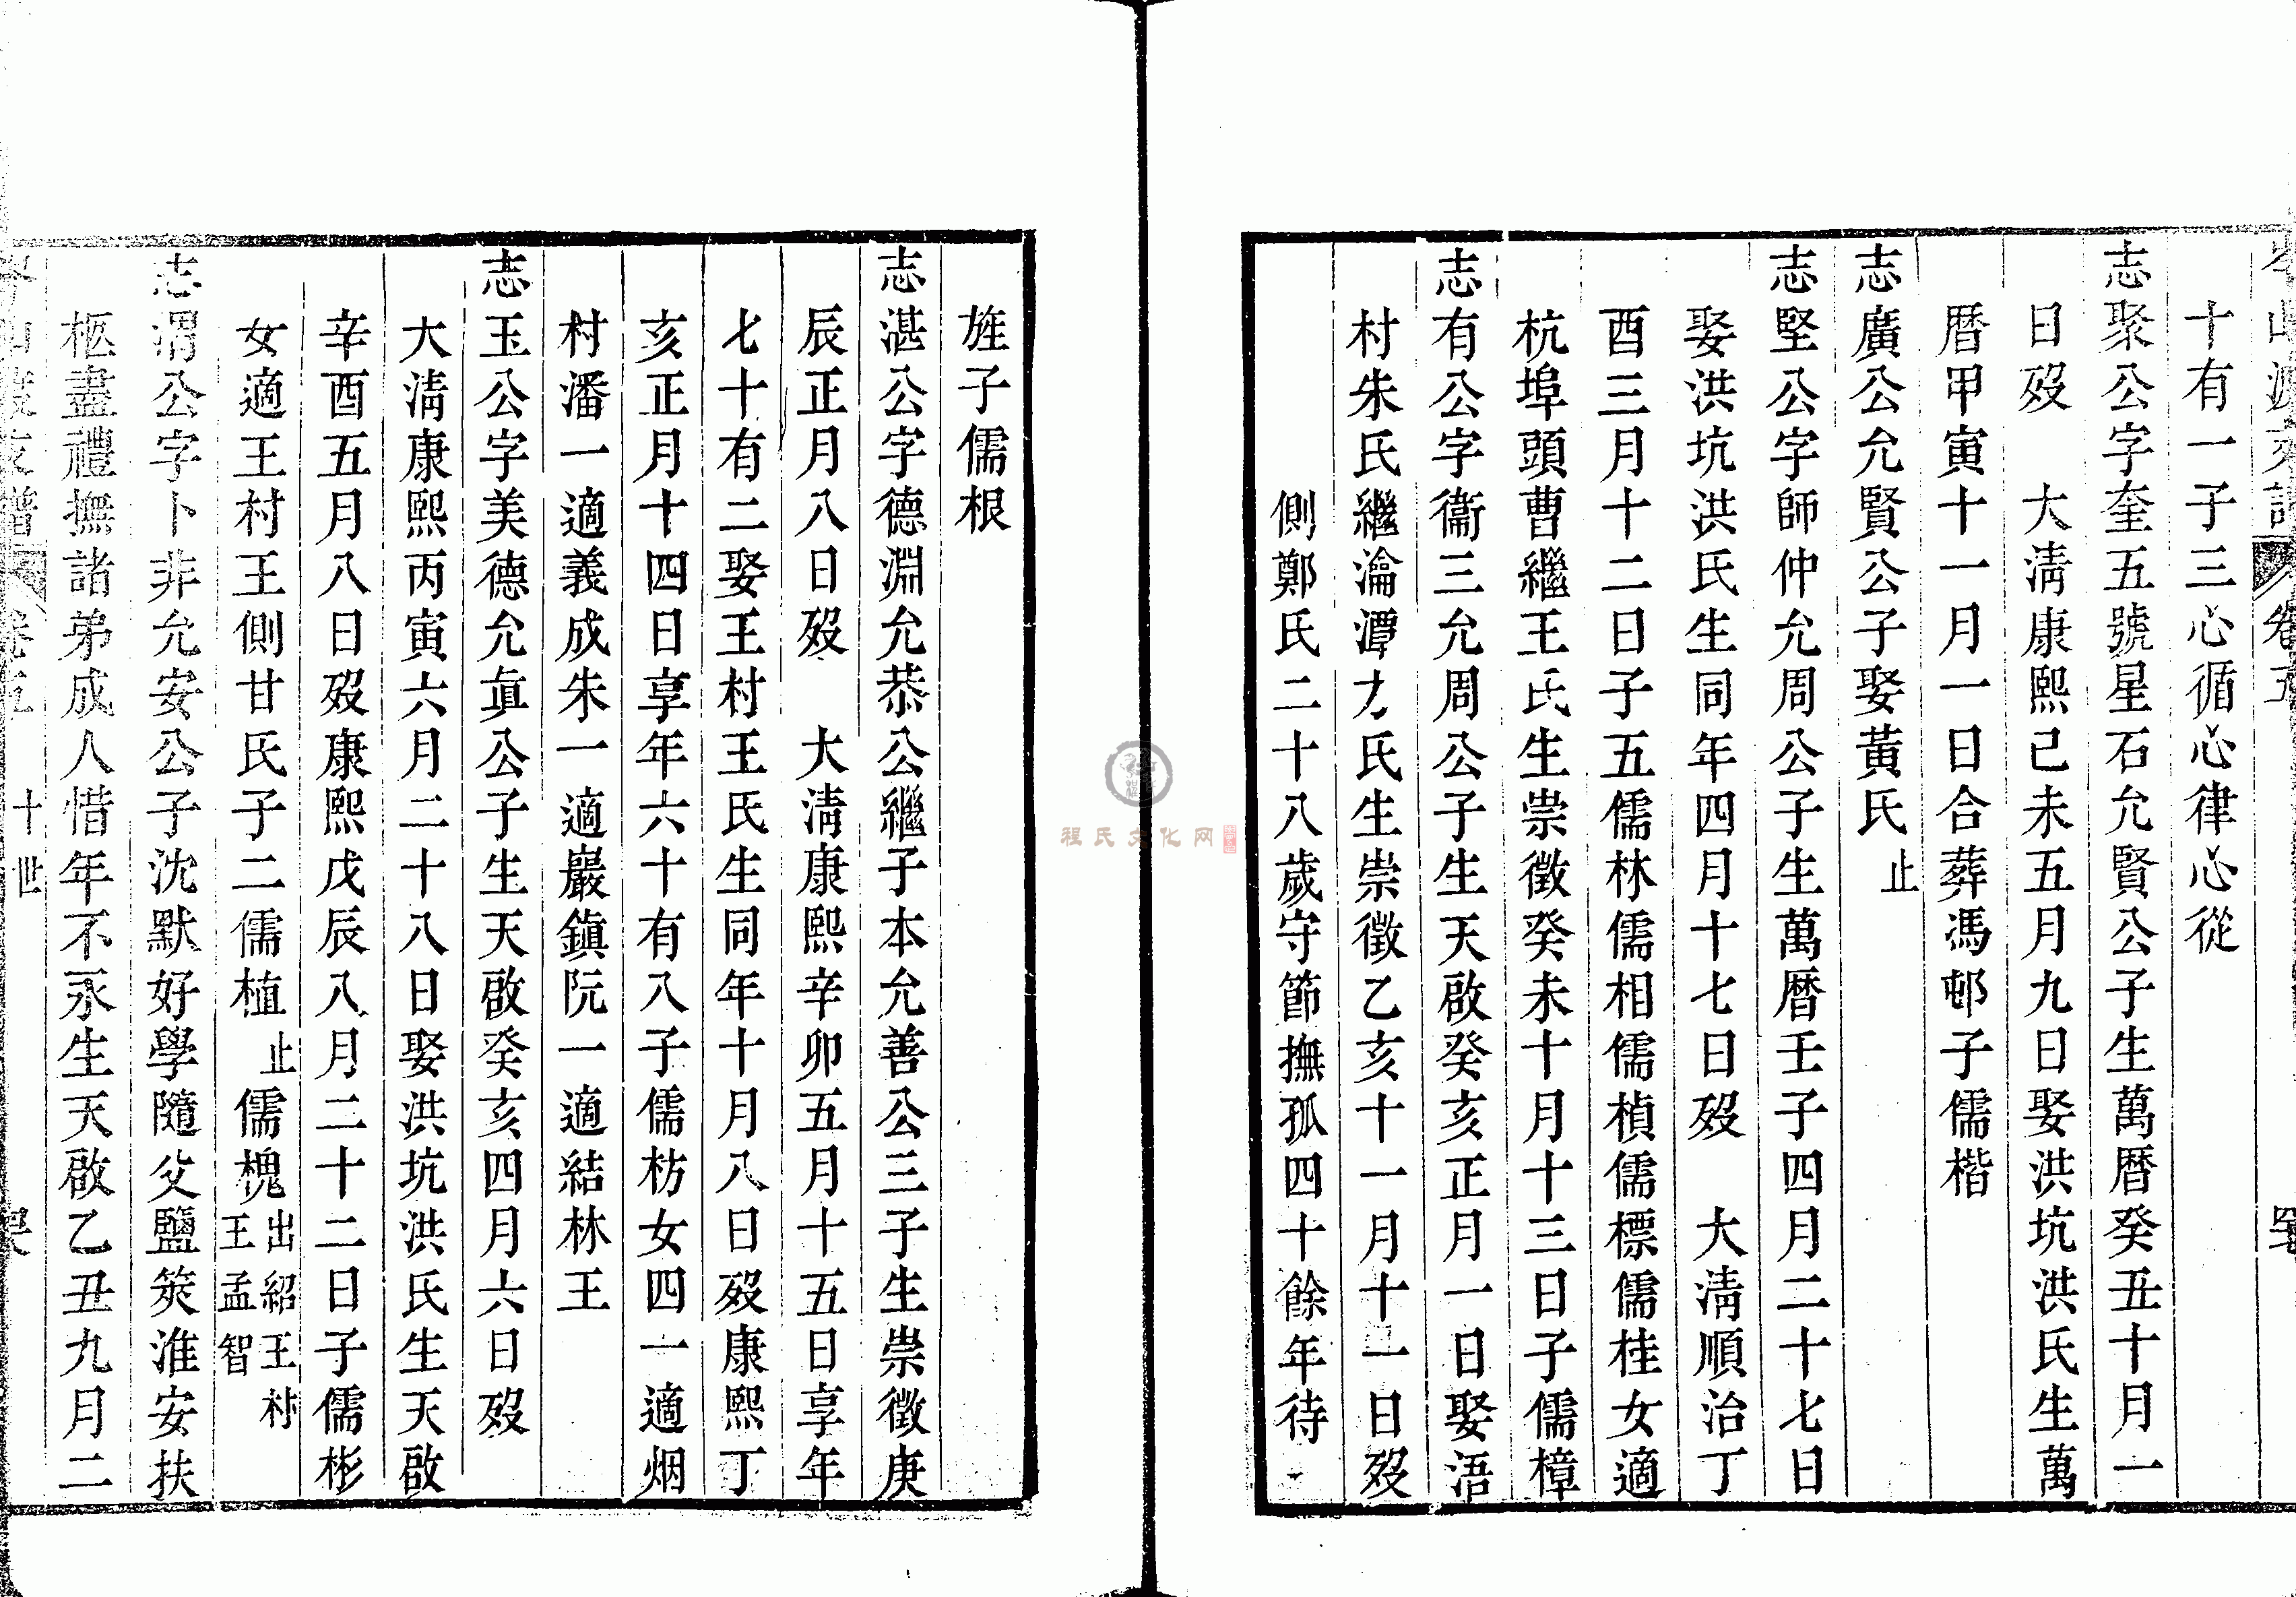 十有一子三心循心律心從
志聚公字奎五號星石允賢公子生萬曆癸丑十月一
日歿　大淸康熙己未五月九日娶洪坑洪氏生萬
曆甲寅十一月一日合葬馮邨子儒楷
志廣公允賢公子娶黃氏止
志堅公字師仲允周公子生萬曆壬子四月二十七日
娶洪坑洪氏生同年四月十七日歿　大淸順治丁
酉三月十二日子五儒林儒相儒楨儒標儒桂女適
杭埠頭曹繼王氏生崇徵癸未十月十三日子儒樟
志有公字衞三允周公子生天啟癸亥正月一日娶浯
村朱氏繼瀹潭方氏生崇徵乙亥十一月十一日歿
側鄭氏二十八歲守節撫孤四十餘年待
旌子儒根
志湛公字德淵允恭公繼子本允善公三子生崇徵庚
辰正月八日歿　大淸康熙辛卯五月十五日享年
七十有二娶王村王氏生同年十月八日歿康熙丁
亥正月十四日享年六十有八子儒枋女四一適烟
村潘一適義成朱一適巖鎮阮一適結林王
志玉公字美德允眞公子生天啟癸亥四月六日歿
大淸康熙丙寅六月二十八日娶洪坑洪氏生天啟
辛酉五月八日歿康熙戊辰八月二十二日子儒彬
女適王村王側甘氏子二儒植止儒槐出紹王村王孟智
志渭公字卜非允安公子沈默好學隨父鹽筴淮安扶
柩盡禮撫諸弟成人惜年不永生天啟乙丑九月二
卷五　十世
程氏文化网